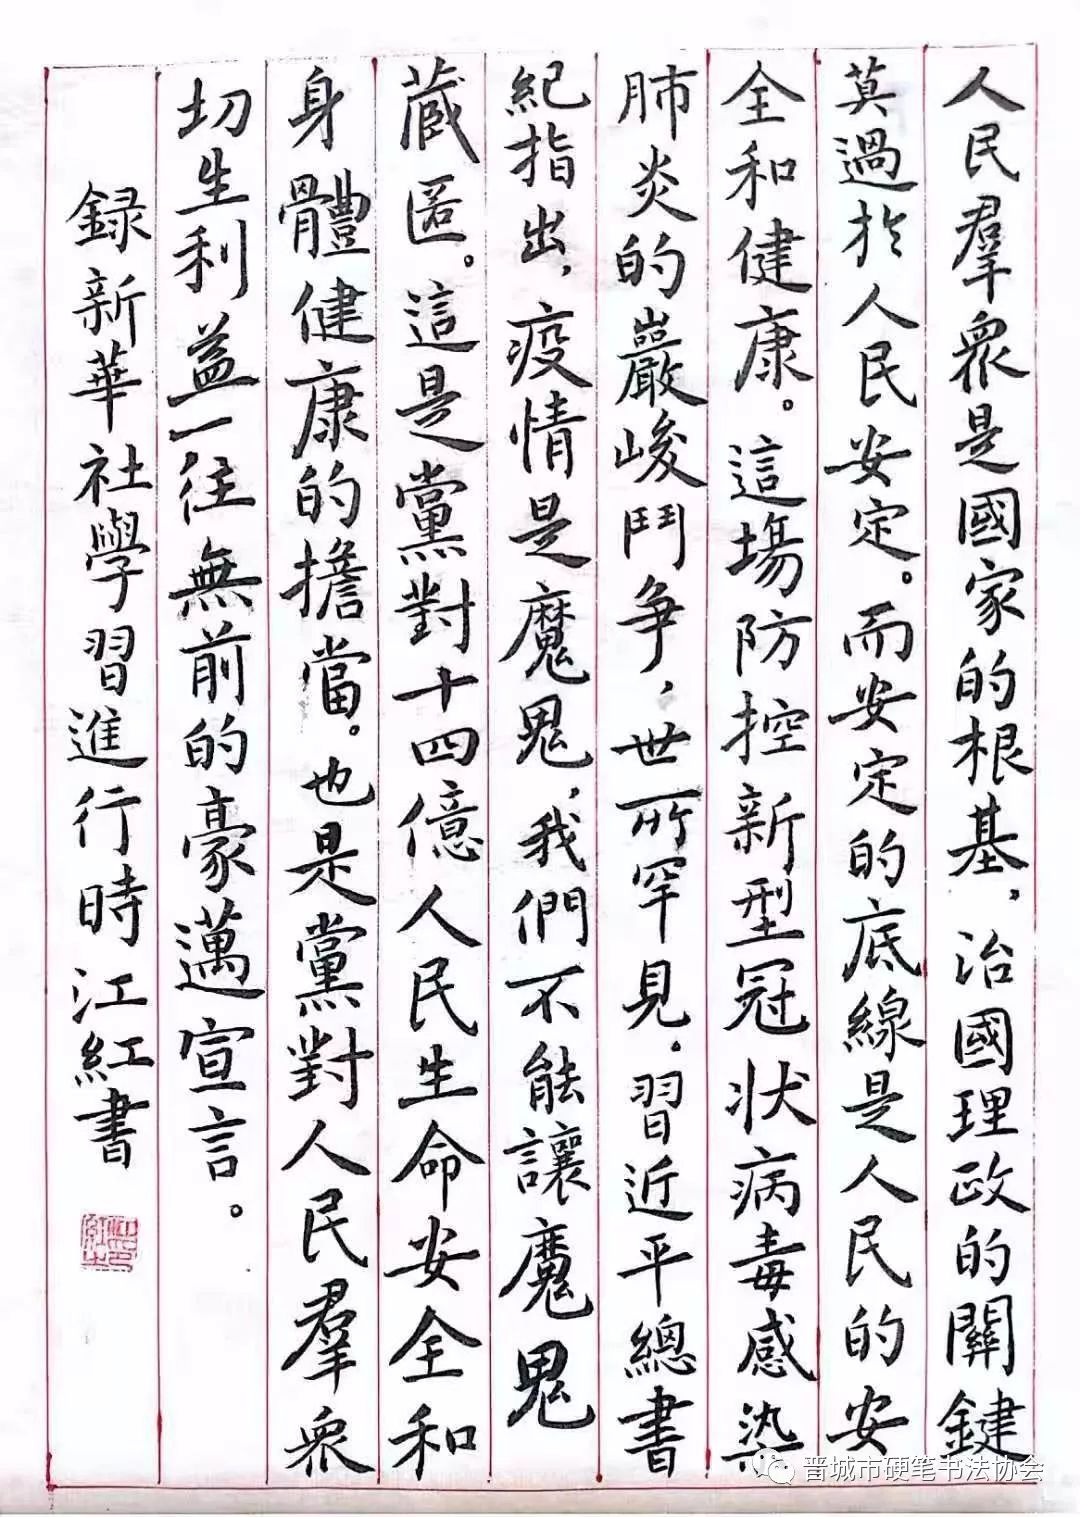 人民羣衆是國家的根基，治國理政的關鍵
莫過於人民安定。而安定的底線是人民的安
全和健康。這場防控新型冠状病毒感染
肺炎的嚴峻鬥争，世所罕見。習近平總書
紀指出，疫情是魔鬼，我們不能讓魔鬼
藏匿。這是黨對十四億人民生命安全和
身體健康的擔當。也是黨對人民羣衆
切生利益一往無前的豪邁宣言。
録新華社學習進行時江紅書
晋城市硬笔书法协会